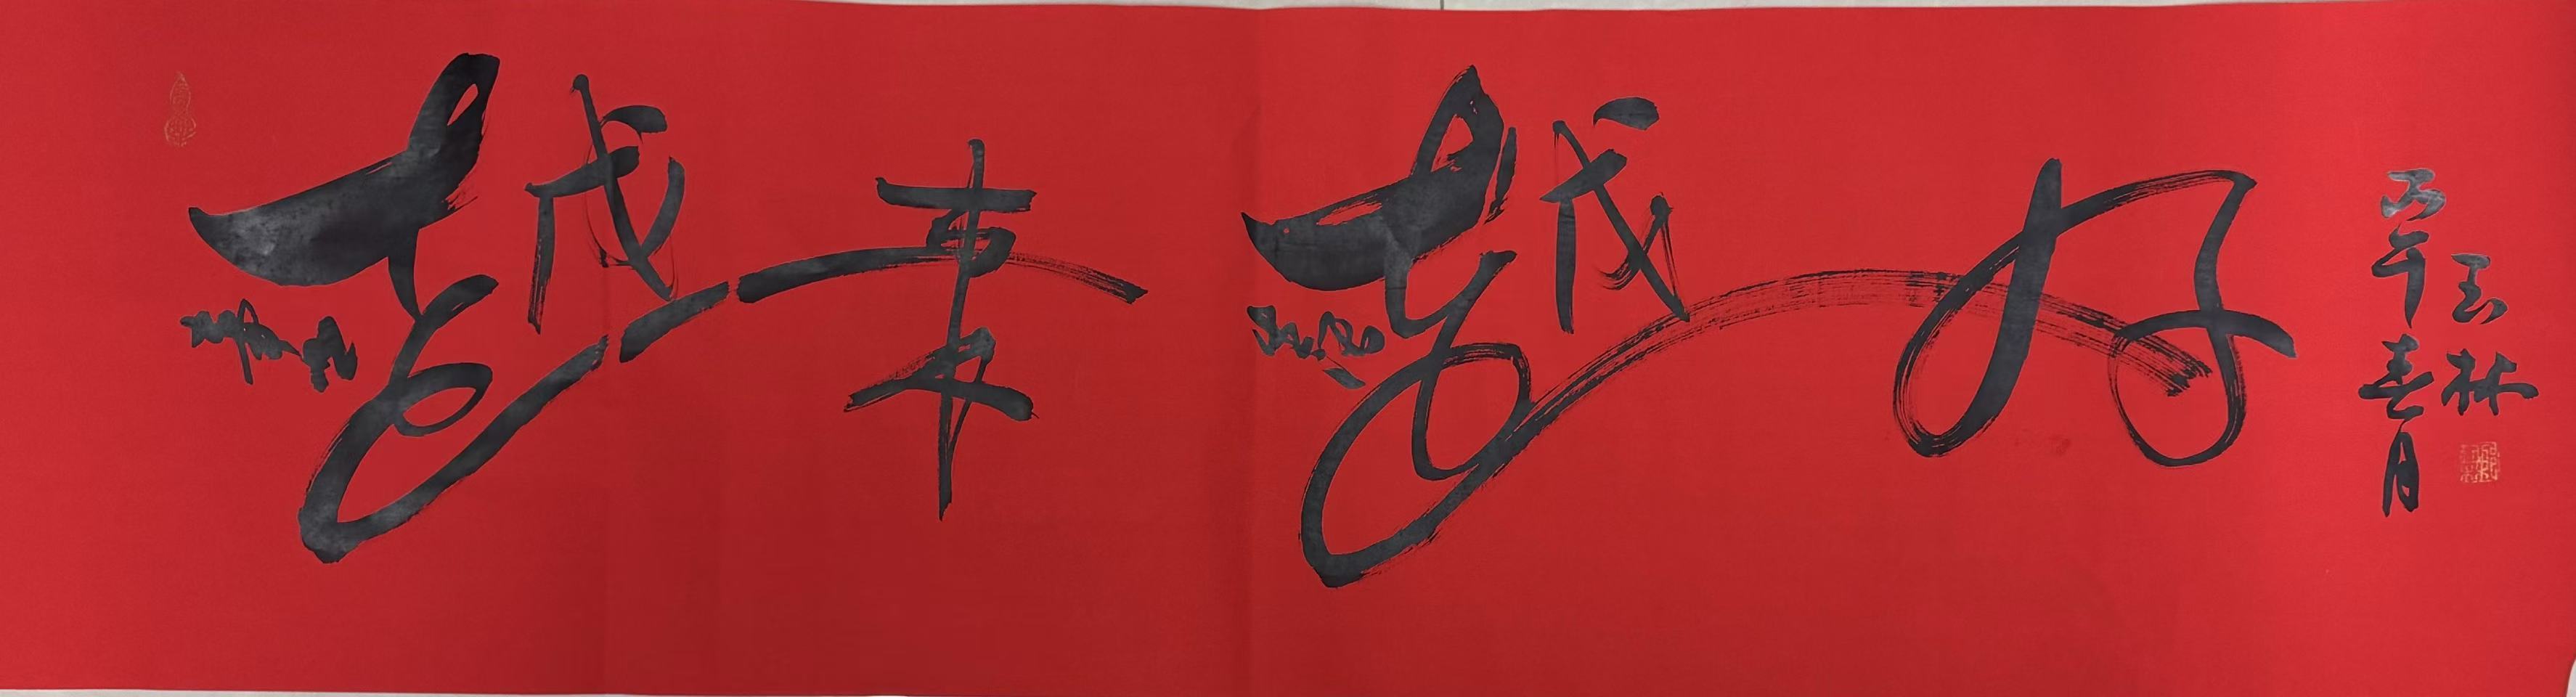 越来越好
丙午春月
玉林